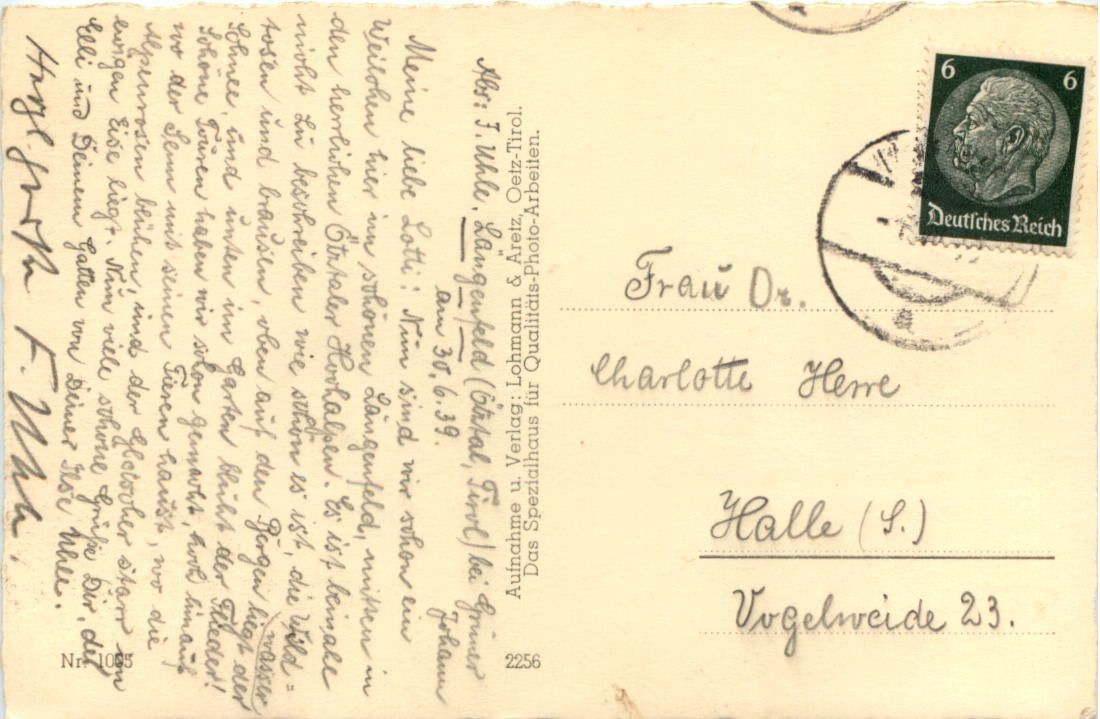 Abs: I. Uhle. Längenfeld (Ötztal, Tirol) bei Grüner
Johann
am 30.6.39.
Meine liebe Lotti! Nun sind wir schon ein
Weilchen hier im schönen Längenfeld, mitten in
den herrlichen Ötztaler Hochalpen. Es ist beinahe
nicht zu beschreiben wie schön es ist, die Wild=
wasser
tosen und brausen, oben auf den Bergen liegt der
Schnee, und unten im Garten blüht der Flieder!
Schöne Touren haben wir schon gemacht, hoch hinauf
wo der Senn mit seinen Tieren haust, wo die
Alpenrosen blühen, und der Gletscher starr im
ewigen Eise liegt. Nun viele schöne Grüße Dir, der
Elli und Deinem Gatten von Deiner Ilse Uhle.
Herzl. F. Uhle.
Aufnahme u. Verlag: Lohmann & Aretz, Oetz-Tirol.
Das Spezialhaus für Qualitäts-Photo-Arbeiten.
Nr. 1095
2256
6 6
Deutsches Reich
Frau Dr.
Charlotte Herre
Halle (S.)
Vogelweide 23.